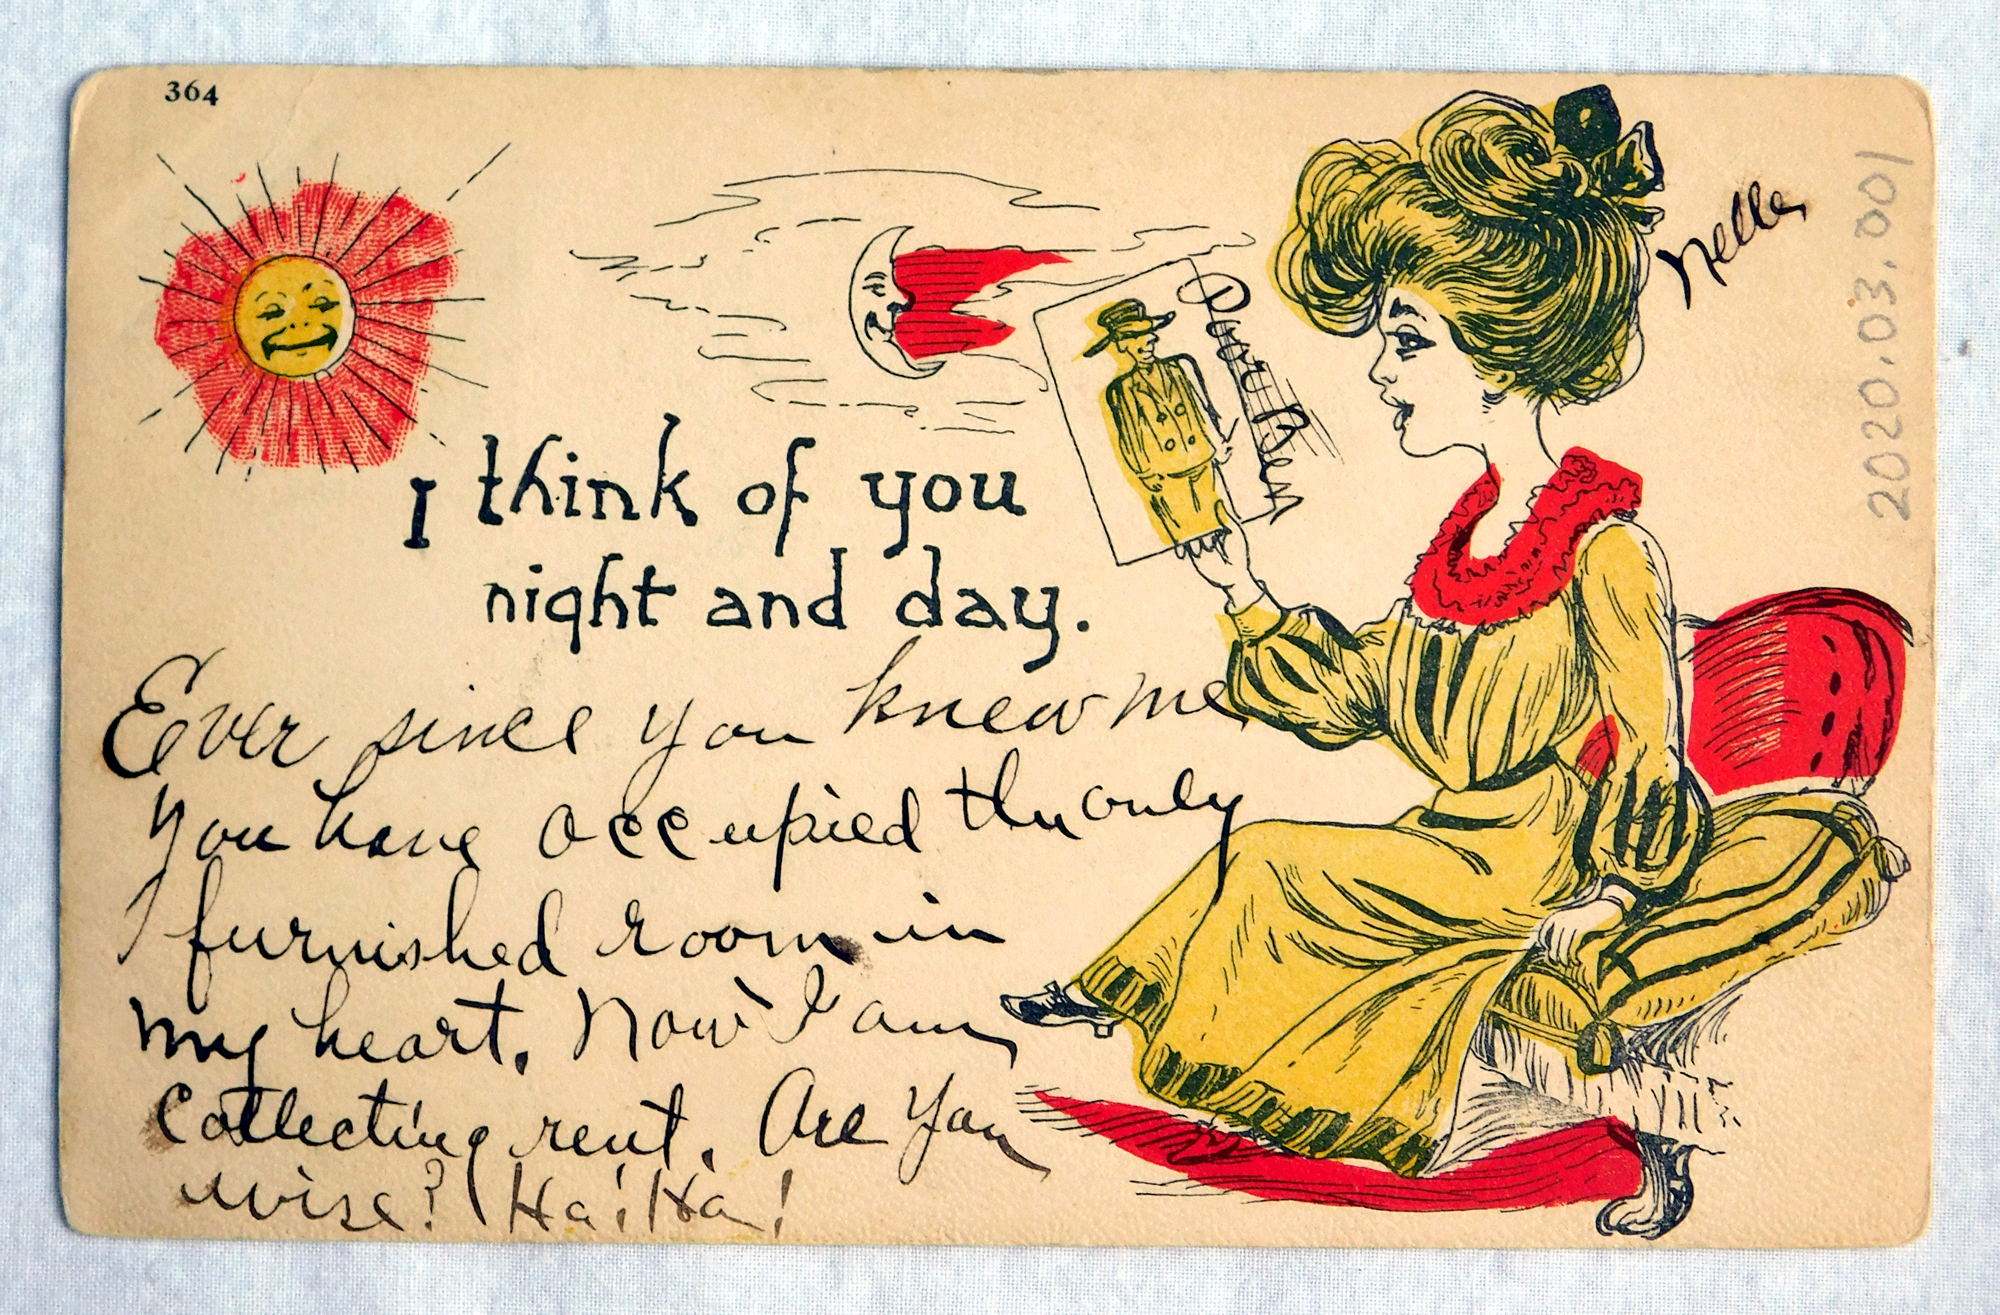 364
I think of you
night and day.
Ever since you knew me
you have occupied the only
furnished room in
my heart. Now I am
collecting rent. Are you
wise? Ha! Ha!
Dear Ben
Nella
2020.03.001